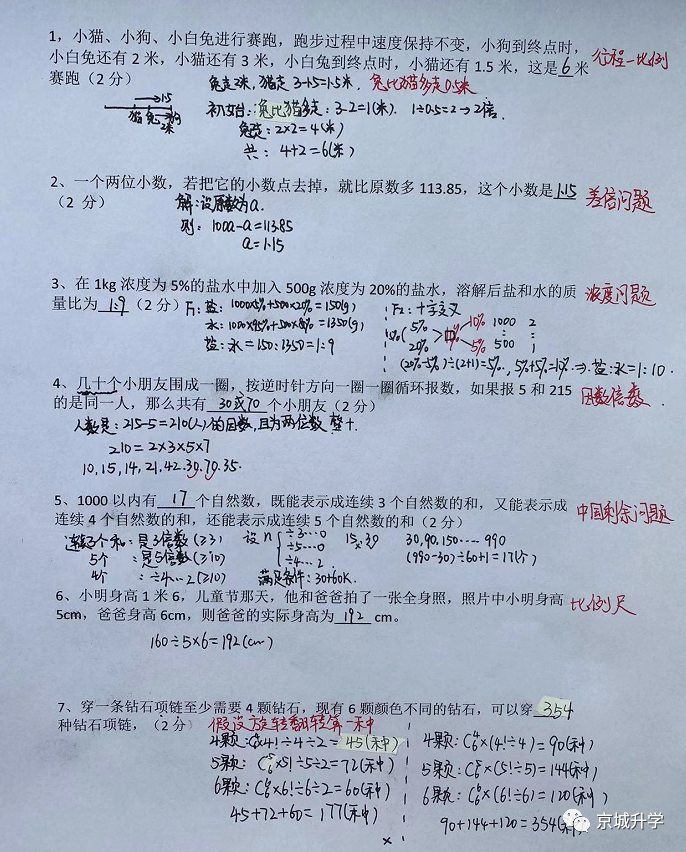 1，小猫、小狗、小白兔进行赛跑，跑步过程中速度保持不变，小狗到终点时，
小白兔还有 2 米，小猫还有 3 米，小白兔到终点时，小猫还有 1.5 米，这是 6 米 行程-比例
赛跑（2 分） 兔走2米，猫走 3-1.5=1.5米. 兔比猫多走0.5米
1.5 初始台：兔比猫多走：3-2=1(米). 1÷0.5=2→2倍.
猫 兔 狗 2米 兔走：2×2=4(米)
共：4+2=6(米)
2、一个两位小数，若把它的小数点去掉，就比原数多 113.85，这个小数是 1.15 差倍问题
（2 分） 解：设原数为a.
列：100a-a=113.85
a=1.15
3、在 1kg 浓度为 5%的盐水中加入 500g 浓度为 20%的盐水，溶解后盐和水的质 浓度问题
量比为 1:9 （2 分） F1：盐：1000×5%+500×20%=150(g) F2：十字交叉
水：1000×95%+500×80%=1350(g) 5% 10% 1000 2
盐：水=150:1350=1:9 20% 5% 500 1
(20%-5%)÷(2+1)=5%，5%+5%=10%⇒盐:水=1:10.
4、几十个小朋友围成一圈，按逆时针方向一圈一圈循环报数，如果报 5 和 215
的是同一人，那么共有 30或70 个小朋友（2 分） 因数倍数.
人数是：215-5=210(人)的因数，且为两位数 整十.
210=2×3×5×7
10,15,14,21,42,30,70,35.
5、1000 以内有 17 个自然数，既能表示成连续 3 个自然数的和，又能表示成 中国剩余问题
连续 4 个自然数的和，还能表示成连续 5 个自然数的和（2 分）
连续3个和：是3倍数(≥3) 设n ÷3…0 15,30 30,90,150……990
5个：是5倍数(≥10) ÷5…0 (990-30)÷60+1=17(个)
4个：÷4…2(≥10) ÷4…2 满足条件：30+60K.
6、小明身高 1 米 6，儿童节那天，他和爸爸拍了一张全身照，照片中小明身高 比例尺
5cm，爸爸身高 6cm，则爸爸的实际身高为 192 cm。
160÷5×6=192(cm)
7、穿一条钻石项链至少需要 4 颗钻石，现有 6 颗颜色不同的钻石，可以穿 354
种钻石项链，（2 分） 假设旋转翻转算一种
4颗：C⁴₆×4!÷4÷2=45(种) 4颗：C⁴₆×(4!÷4)=90(种)
5颗：C⁵₆×5!÷5÷2=72(种) 5颗：C⁵₆×(5!÷5)=144(种)
6颗：C⁶₆×6!÷6÷2=60(种) 6颗：C⁶₆×(6!÷6)=120(种)
45+72+60=177(种) 90+144+120=354(种)
×
京城升学